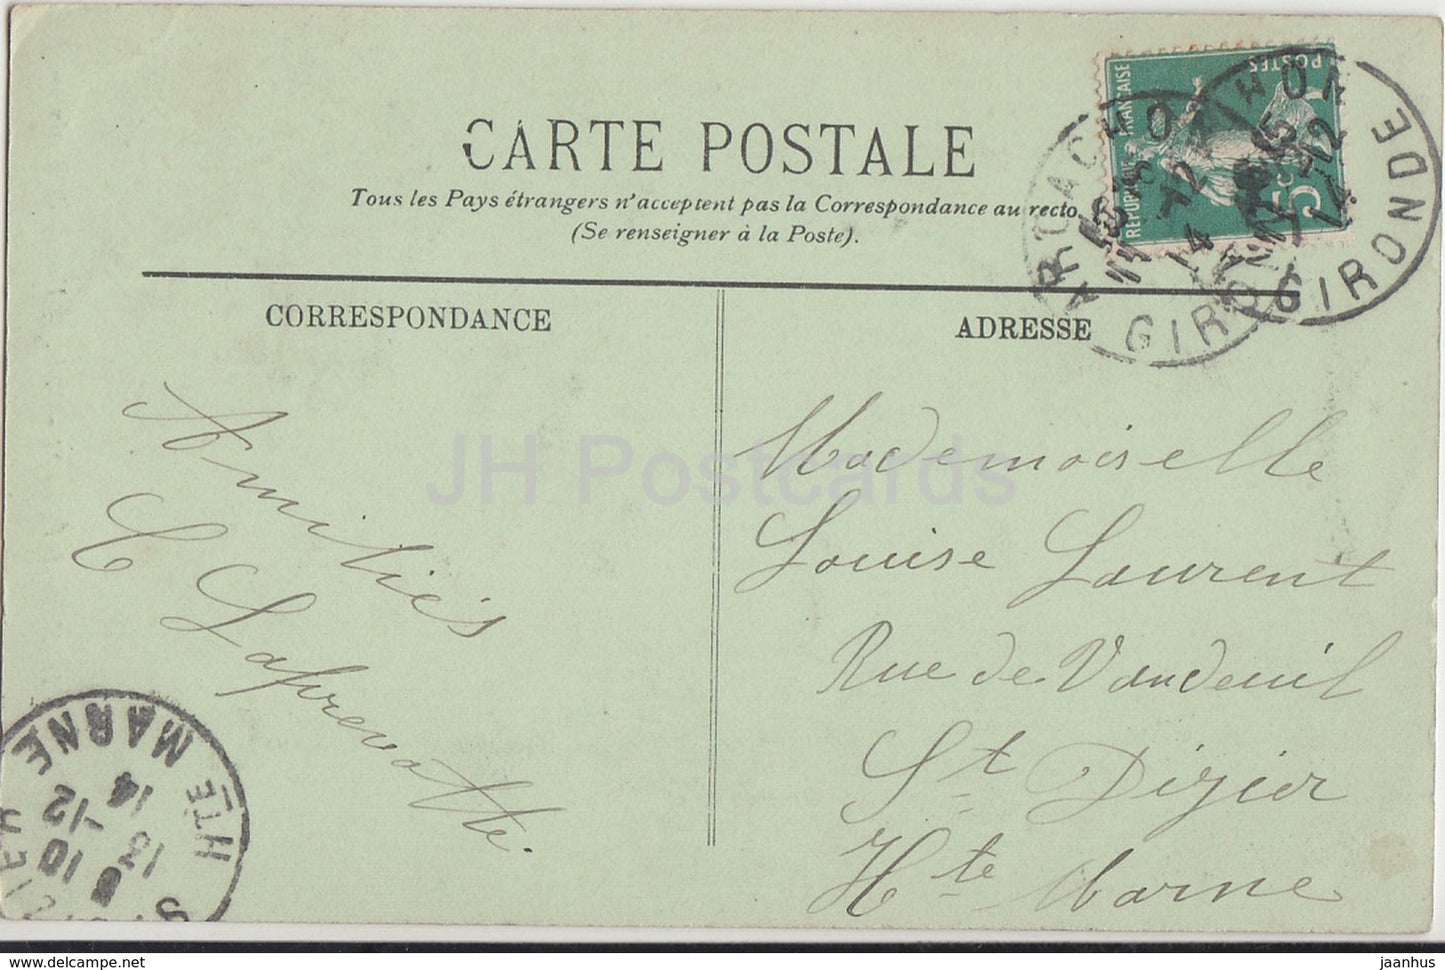 CARTE POSTALE
Tous les Pays étrangers n'acceptent pas la Correspondance au recto.
(Se renseigner à la Poste).
CORRESPONDANCE
ADRESSE
POSTES
FRANÇAISE
5c
ARCACHON
GIRONDE
Amitiés
C Laprevotte.
Mademoiselle
Louise Laurent
Rue de Vandeuil
St Dizier
Hte Marne
HTE MARNE
10
13 -12
14
JH Postcards
www.delcampe.net
jaanhus